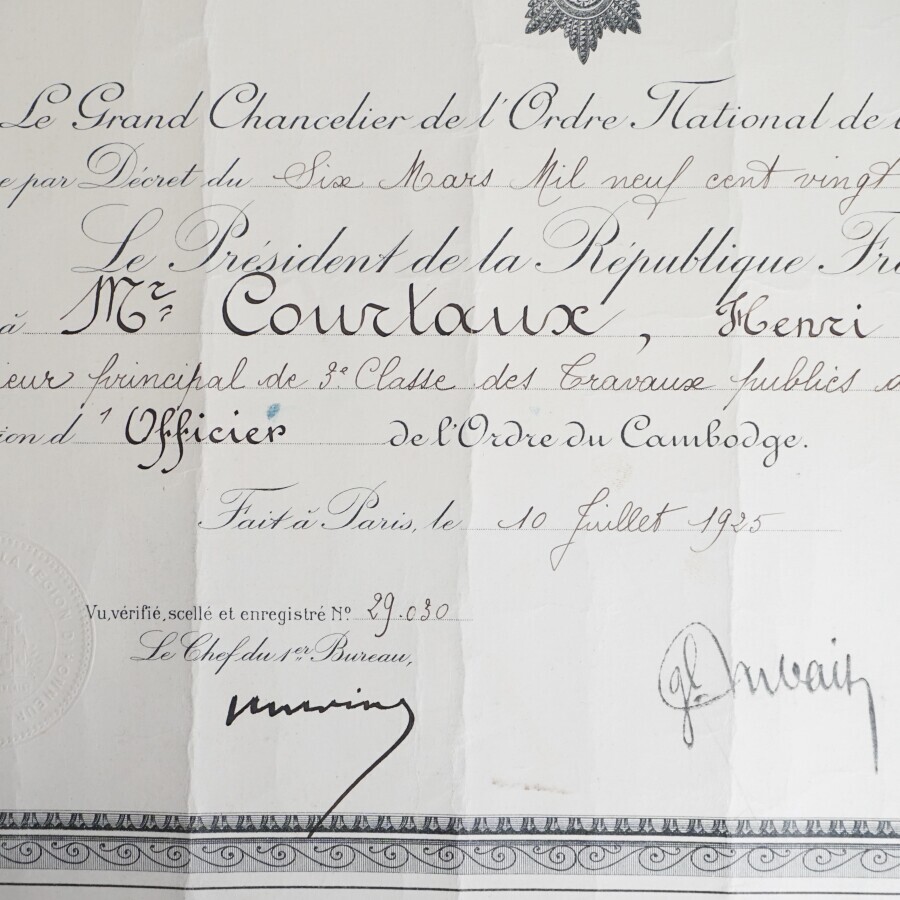 Le Grand Chancelier de l'Ordre National de
e par Décret du Six Mars Mil neuf cent vingt
Le Président de la République Fra
à Mr Courtaux, Henri
ieur principal de 3e Classe des Travaux publics
ion d'Officier de l'Ordre du Cambodge.
Fait à Paris, le 10 Juillet 1925
LA LEGION D'HONNEUR
Vu, vérifié, scellé et enregistré No 29.030
Le Chef du 1er Bureau,
gl Dubail